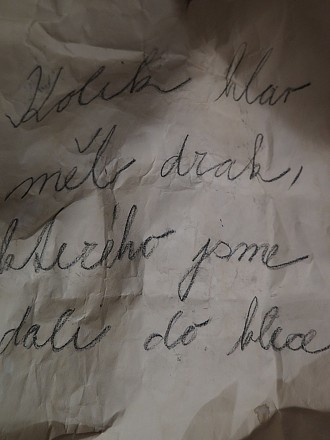 Kolik hlav
měl drak,
kterého jsme
dali do klece